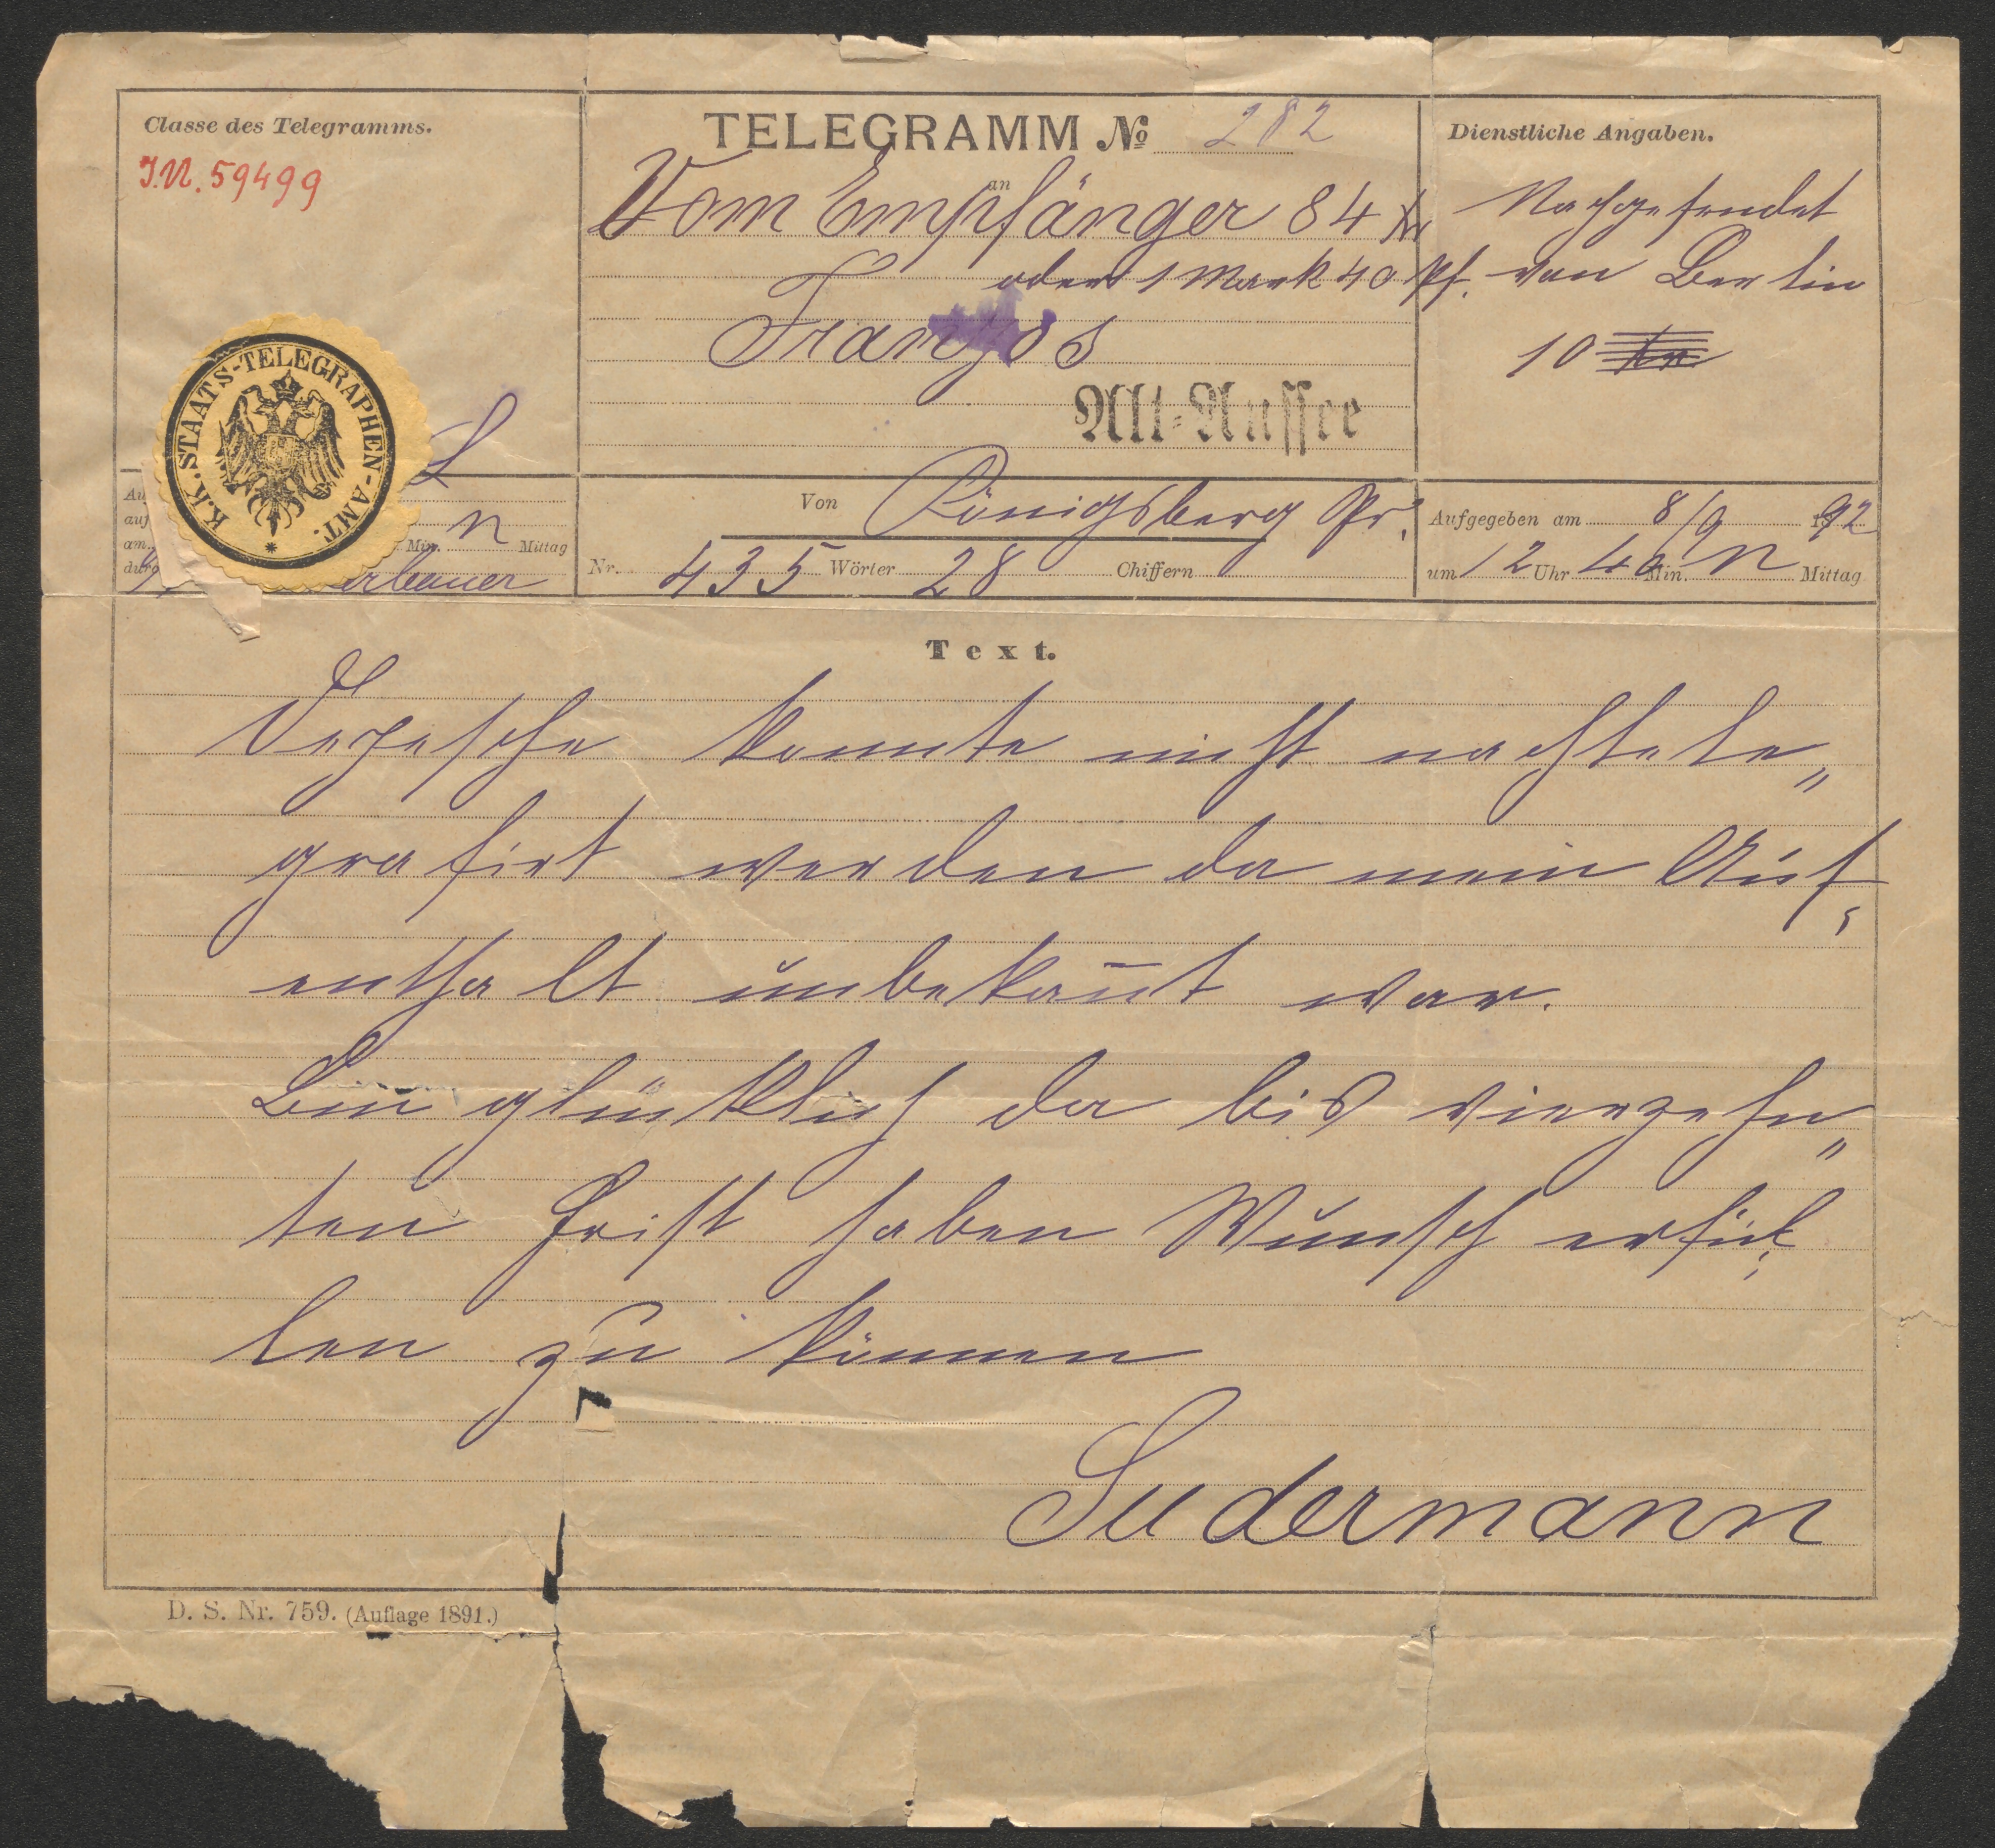 Classe des Telegramms.
J.N. 59499
TELEGRAMM № 282
an
Vom Empfänger 84 kr
oder 1 Mark 40 Pf.
Franzos
Alt-Aussee
Dienstliche Angaben.
Nachgesendet
von Berlin
10
K.K. STAATS-TELEGRAPHEN-AMT.
L
Au
auf
am
Min. N Mittag
durch
erbauer
Von Königsberg Pr.
Nr. 435 Wörter 28 Chiffern
Aufgegeben am 8/9 1892
um 12 Uhr 40 Min. N Mittag
Text.
Depesche konnte nicht nachtele„
grafirt werden da mein Auf„
enthalt unbekan̄t war.
Bin glücklich da bis vierzehn„
ten Frist haben Wunsch erfül„
len zu können
Sudermann
D. S. Nr. 759. (Auflage 1891.)